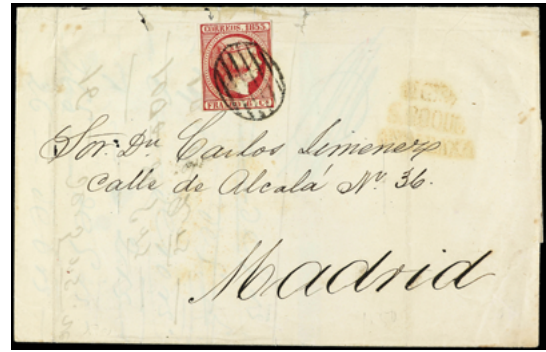 CORREOS. 1853.
FRANCO 6 Cs
Sor. Dn. Carlos Jimenez
Calle de Alcalá No. 36.
Madrid